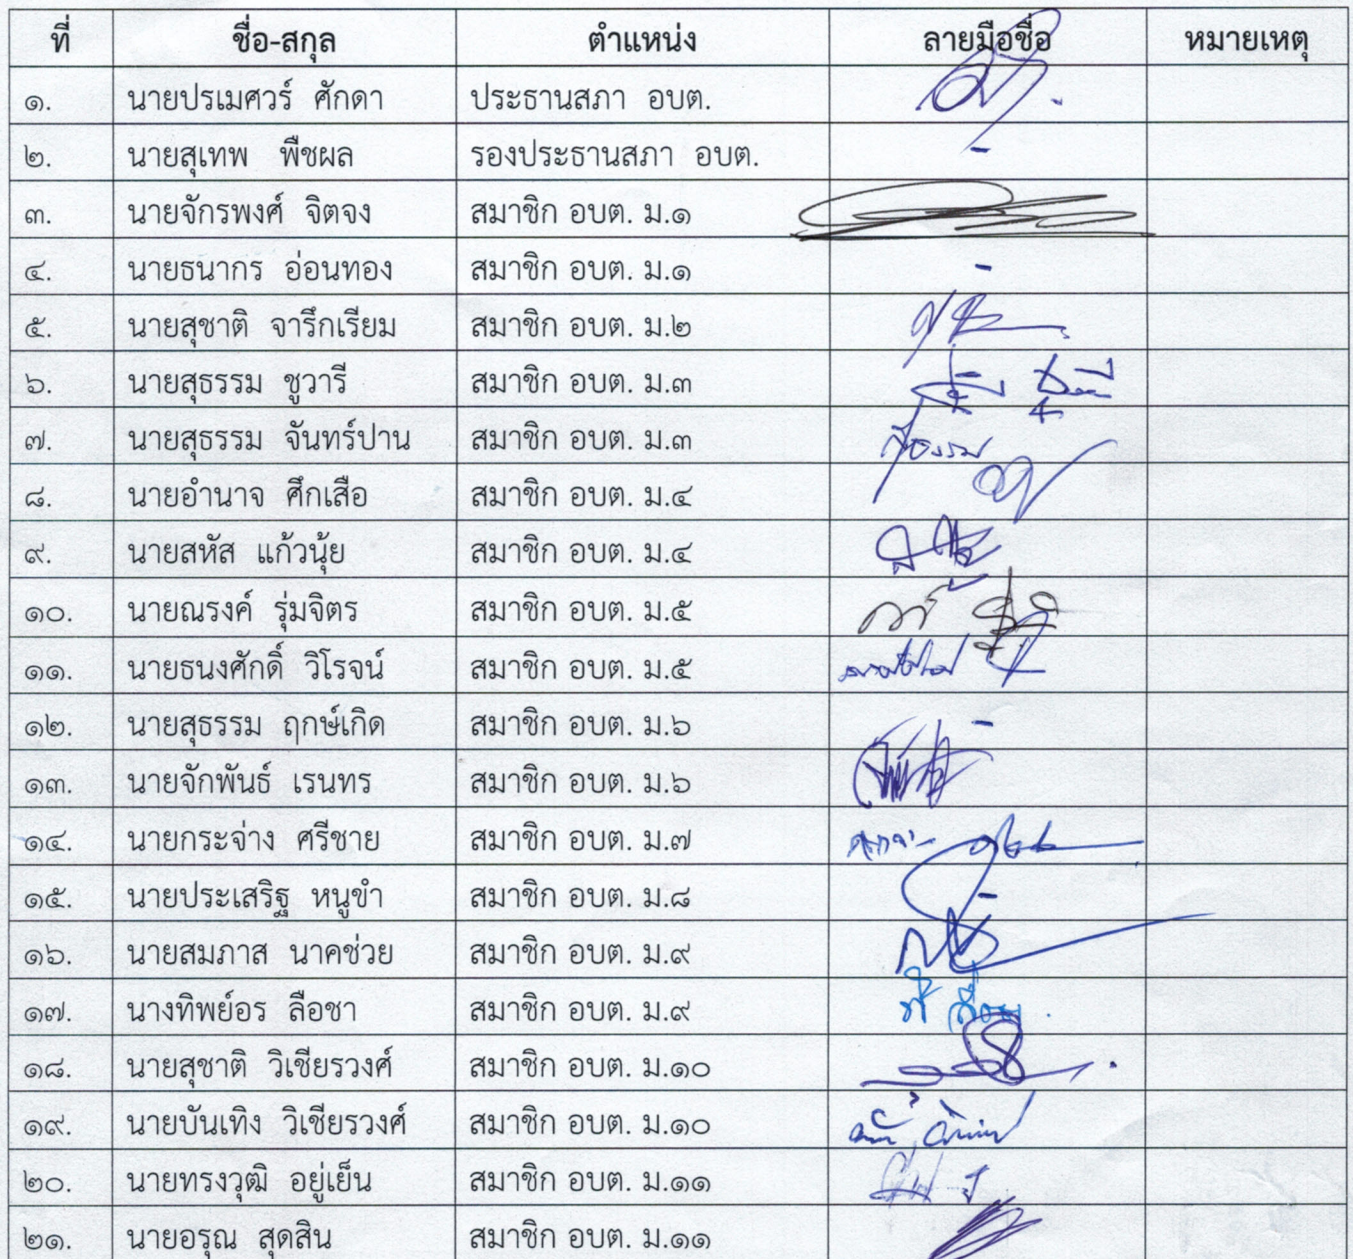 ที่ ชื่อ-สกุล ตำแหน่ง ลายมือชื่อ หมายเหตุ
๑. นายปรเมศวร์ ศักดา ประธานสภา อบต.
๒. นายสุเทพ พืชผล รองประธานสภา อบต. -
๓. นายจักรพงศ์ จิตจง สมาชิก อบต. ม.๑
๔. นายธนากร อ่อนทอง สมาชิก อบต. ม.๑ -
๕. นายสุชาติ จารึกเรียม สมาชิก อบต. ม.๒
๖. นายสุธรรม ชูวารี สมาชิก อบต. ม.๓
๗. นายสุธรรม จันทร์ปาน สมาชิก อบต. ม.๓
๘. นายอำนาจ ศึกเสือ สมาชิก อบต. ม.๔
๙. นายสหัส แก้วนุ้ย สมาชิก อบต. ม.๔
๑๐. นายณรงค์ รุ่มจิตร สมาชิก อบต. ม.๕
๑๑. นายธนงศักดิ์ วิโรจน์ สมาชิก อบต. ม.๕
๑๒. นายสุธรรม ฤกษ์เกิด สมาชิก อบต. ม.๖ -
๑๓. นายจักพันธ์ เรนทร สมาชิก อบต. ม.๖
๑๔. นายกระจ่าง ศรีชาย สมาชิก อบต. ม.๗
๑๕. นายประเสริฐ หนูขำ สมาชิก อบต. ม.๘ -
๑๖. นายสมภาส นาคช่วย สมาชิก อบต. ม.๙
๑๗. นางทิพย์อร ลือชา สมาชิก อบต. ม.๙
๑๘. นายสุชาติ วิเชียรวงศ์ สมาชิก อบต. ม.๑๐
๑๙. นายบันเทิง วิเชียรวงศ์ สมาชิก อบต. ม.๑๐
๒๐. นายทรงวุฒิ อยู่เย็น สมาชิก อบต. ม.๑๑
๒๑. นายอรุณ สุดสิน สมาชิก อบต. ม.๑๑